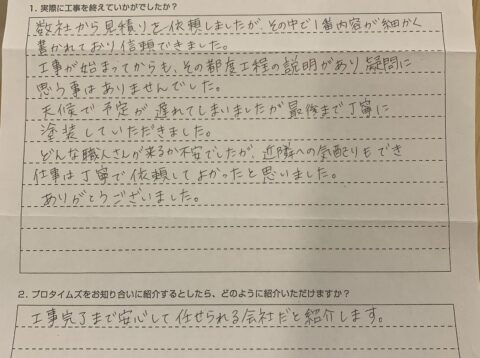 1. 実際に工事を終えていかがでしたか？
数社から見積りを依頼しましたが、その中で1番内容が細かく
書かれており信頼できました。
工事が始まってからも、その都度工程の説明があり疑問に
思う事はありませんでした。
天候で予定が遅れてしまいましたが最後まで丁寧に
塗装していただきました。
どんな職人さんが来るか不安でしたが、近隣への気配りもでき
仕事は丁寧で依頼してよかったと思いました。
ありがとうございました。
2. プロタイムズをお知り合いに紹介するとしたら、どのように紹介いただけますか？
工事完了まで安心して任せられる会社だと紹介します。